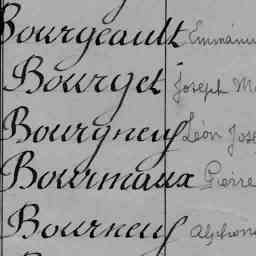 Bourgeault Emmanu
Bourget Joseph Ma
Bourgneuf Léon Jose
Bourmaux Pierre
Bourneuf Alphons